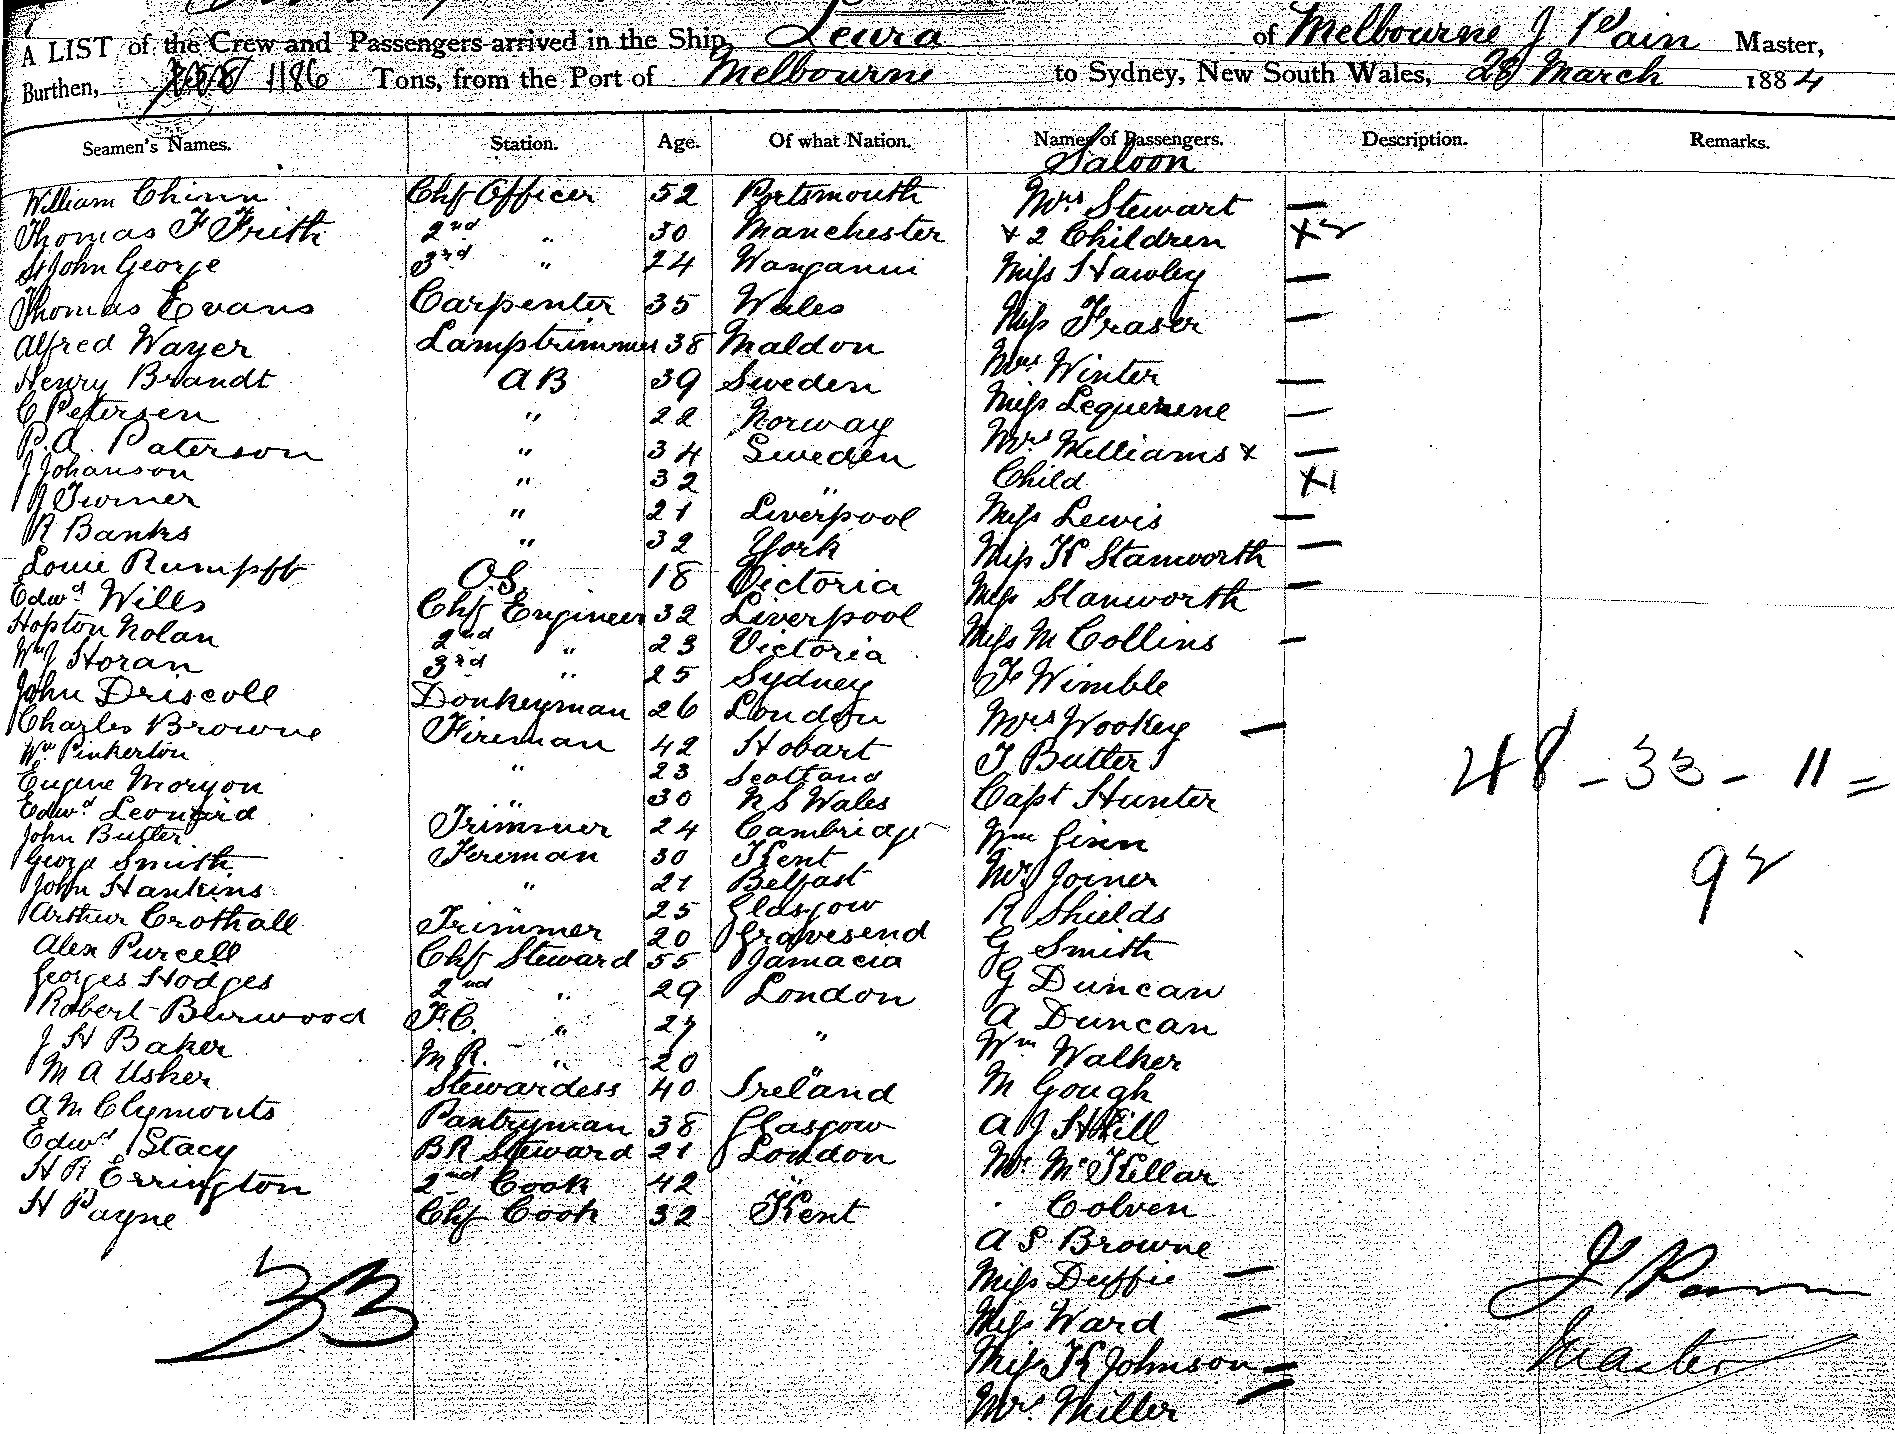 A LIST of the Crew and Passengers arrived in the Ship, Leura of Melbourne J Pain Master,
Burthen, 1186 Tons, from the Port of Melbourne to Sydney, New South Wales, 28 March 1884
Seamen's Names. Station. Age. Of what Nation. Names of Passengers. Description. Remarks.
Saloon
William Chinn Chf Officer 52 Portsmouth Mrs Stewart —
Thomas F Frith 2nd " 30 Manchester + 2 Children +2
St John George 3rd " 24 Wanganui Miss Hawley —
Thomas Evans Carpenter 35 Wales Miss Fraser —
Alfred Wayer Lamptrimmer 38 Maldon Mrs Winter —
Henry Brandt AB 39 Sweden Miss Lequesne —
C Petersen " 22 Norway Mrs Williams + —
P.A. Paterson " 34 Sweden Child +1
J Johanson " 32 " Miss Lewis —
J Turner " 21 Liverpool Miss K Stanworth —
R Banks " 32 York Miss Stanworth —
Louie Rumpff OS 18 Victoria Miss M Collins —
Edwd Wills Chf Engineer 32 Liverpool F Wimble
Hopton Nolan 2nd " 23 Victoria Mrs Wookey —
Wm J Horan 3rd " 25 Sydney T Butters
John Driscoll Donkeyman 26 London Capt Hunter
Charles Browne Fireman 42 Hobart Wm Ginn
Wm Pinkerton " 23 Scotland Mr Joiner
Eugene Moryon " 30 N S Wales R Shields
Edwd Leonard Trimmer 24 Cambridge G Smith
John Butler Fireman 30 Kent G Duncan
George Smith " 21 Belfast A Duncan
John Hankins " 25 Glasgow Wm Walker
Arthur Crothall Trimmer 20 Gravesend M Gough
Alex Purcell Chf Steward 55 Jamacia A J Hill
Georges Hodges 2nd " 29 London Mr McKellar
Robert Burwood F.C. " 27 " " Colven
J H Baker M R. " 20 " A S Browne
M A Usher Stewardess 40 Ireland Miss Duffie —
A M Clymonts Pantryman 38 Glasgow Miss Ward —
Edwd Stacy BR Steward 21 London Miss K Johnson —
H R Errington 2nd Cook 42 " Mrs Miller —
H Payne Chf Cook 32 Kent
48 - 33 - 11 =
92
33
J Pain
Master